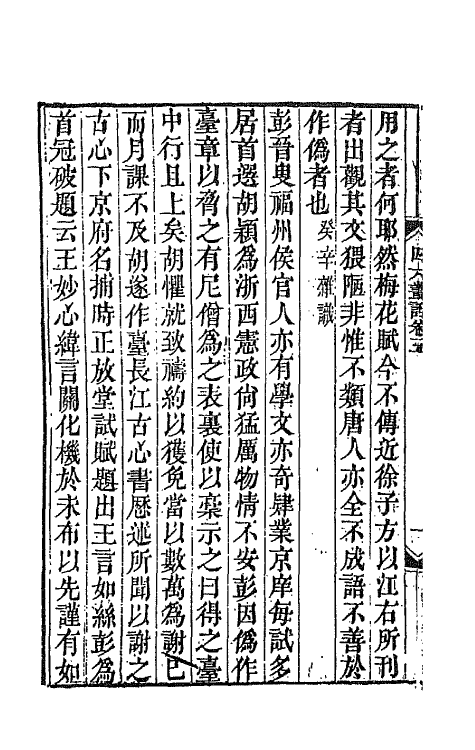 用之者何耶然梅花賦今不傳近徐子方以江右所刊
者出觀其文猥陋非惟不類唐人亦全不成語不善於
作僞者也癸辛雜識
彭晉叟福州侯官人亦有學文亦奇肄業京庠每試多
居首選胡穎爲浙西憲政尙猛厲物情不安彭因僞作
臺章以脅之有尼僧爲之表裏使以稾示之曰得之臺
中行且上矣胡懼就致禱約以獲免當以數萬爲謝已
而月課不及胡遂作臺長江古心書歷述所聞以謝之
古心下京府名捕時正放堂試賦題出王言如絲彭爲
首冠破題云王妙心緯言關化機於未布以先謹有如
四六叢話卷